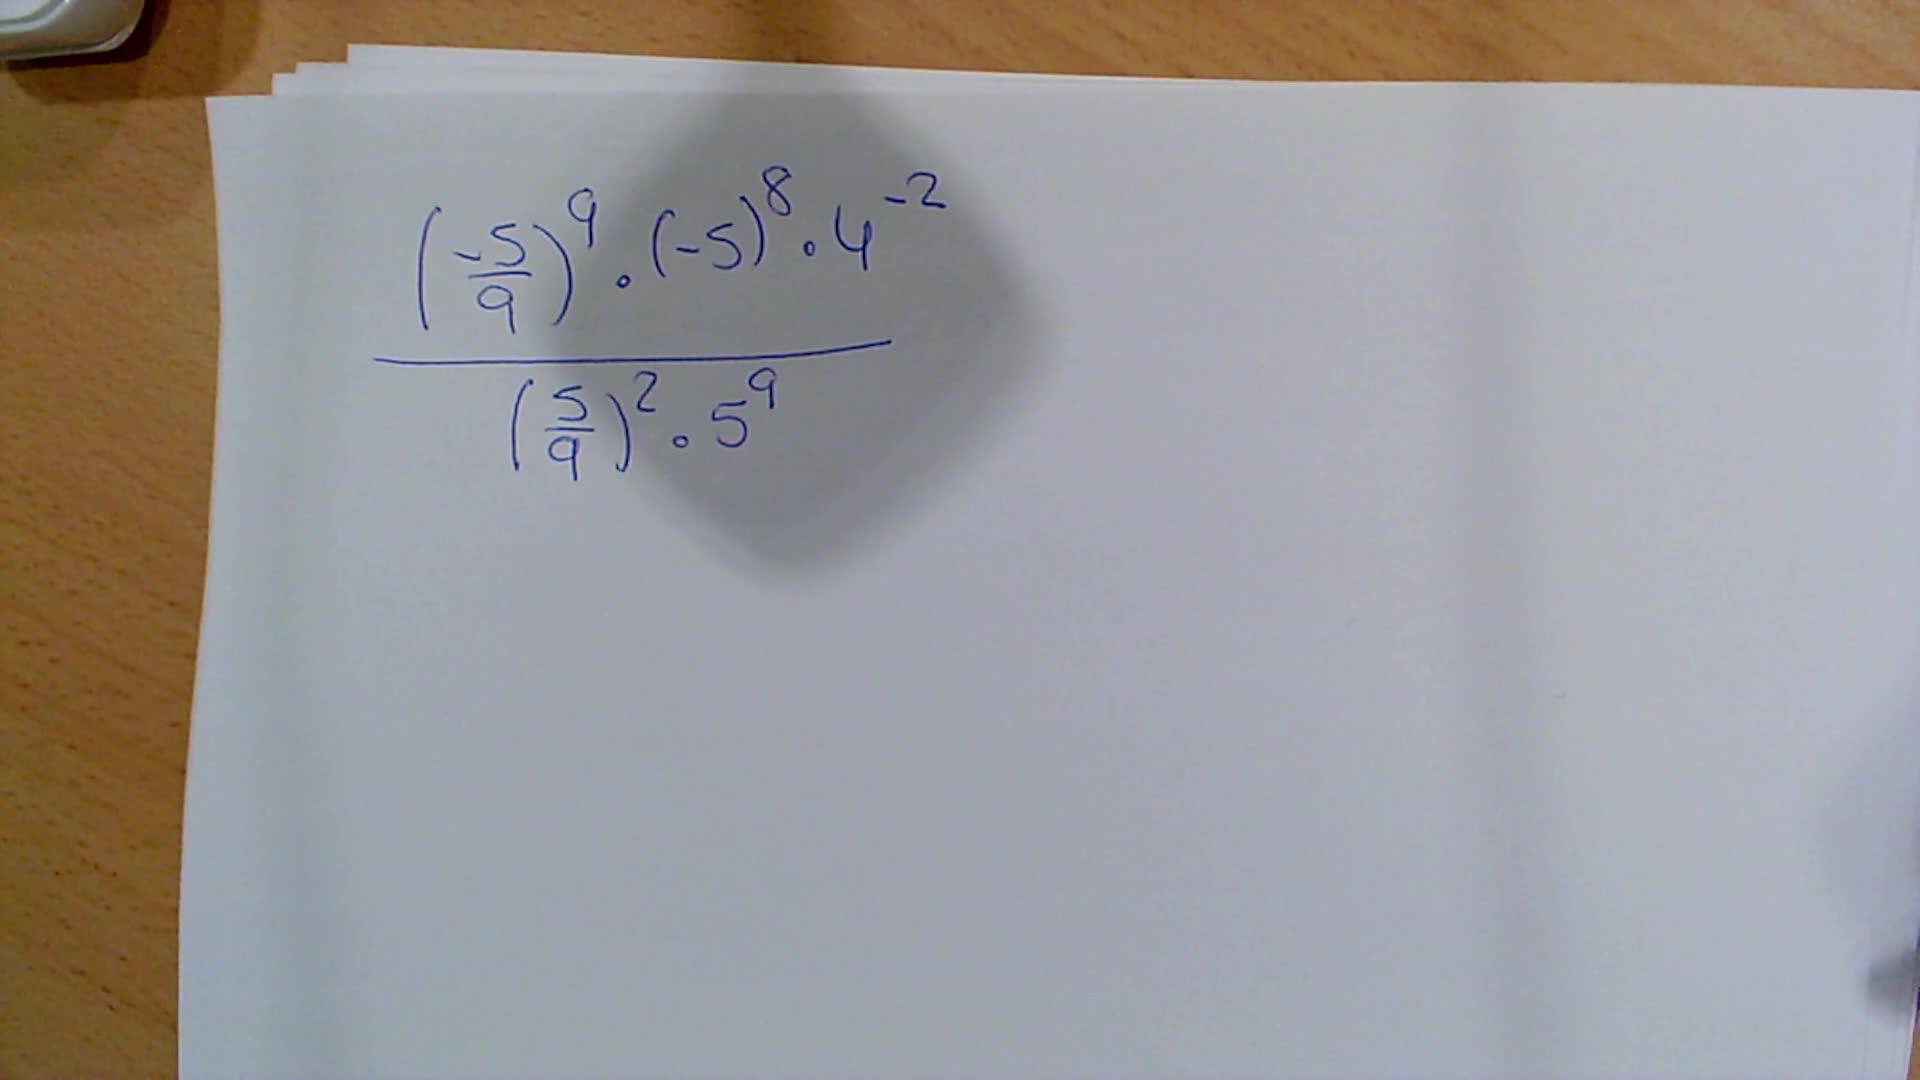 (-5/9)^9 · (-5)^8 · 4^-2
(5/9)^2 · 5^9